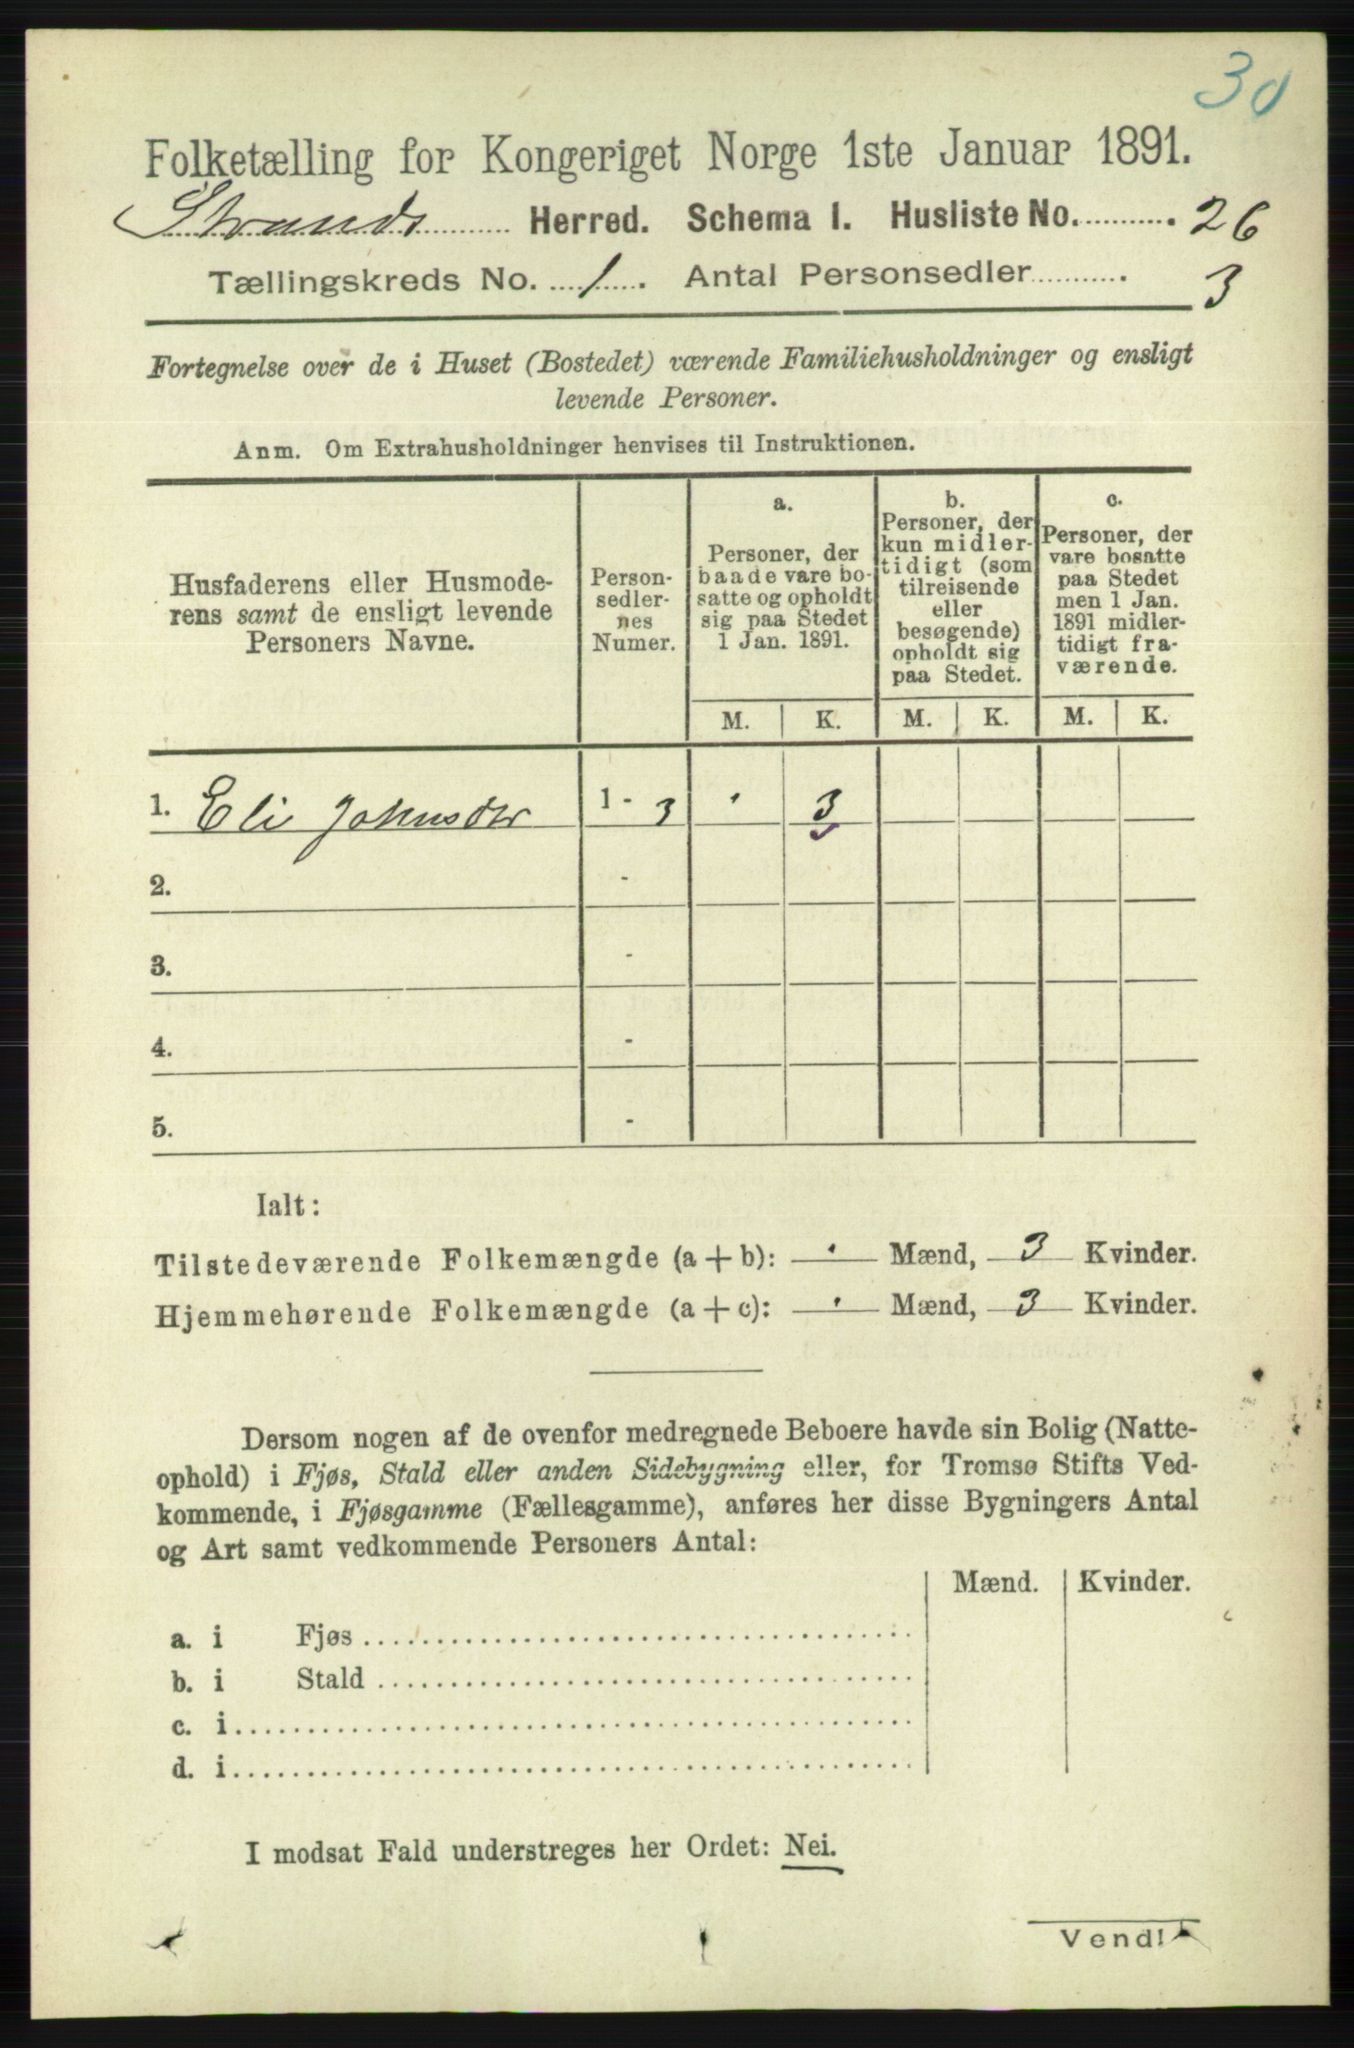 30
Folketælling for Kongeriget Norge 1ste Januar 1891.
Strands Herred. Schema I. Husliste No. 26
Tællingskreds No. 1. Antal Personsedler 3
Fortegnelse over de i Huset (Bostedet) værende Familiehusholdninger og ensligt
levende Personer.
Anm. Om Extrahusholdninger henvises til Instruktionen.
Husfaderens eller Husmode-
rens samt de ensligt levende
Personers Navne.
Person-
sedler-
nes
Numer.
a.
Personer, der
baade vare bo-
satte og opholdt
sig paa Stedet
1 Jan. 1891.
b.
Personer, der
kun midler-
tidigt (som
tilreisende
eller
besøgende)
opholdt sig
paa Stedet.
c.
Personer, der
vare bosatte
paa Stedet
men 1 Jan.
1891 midler-
tidigt fra-
værende.
M. K. M. K. M. K.
1. Eli Johnsdtr 1 - 3 · 3
2. -
3. -
4. -
5. -
Ialt:
Tilstedeværende Folkemængde (a + b): · Mænd, 3 Kvinder.
Hjemmehørende Folkemængde (a + c): · Mænd, 3 Kvinder.
Dersom nogen af de ovenfor medregnede Beboere havde sin Bolig (Natte-
ophold) i Fjøs, Stald eller anden Sidebygning eller, for Tromsø Stifts Ved-
kommende, i Fjøsgamme (Fællesgamme), anføres her disse Bygningers Antal
og Art samt vedkommende Personers Antal:
Mænd. Kvinder.
a. i Fjøs
b. i Stald
c. i
d. i
I modsat Fald understreges her Ordet: Nei.
Vend!